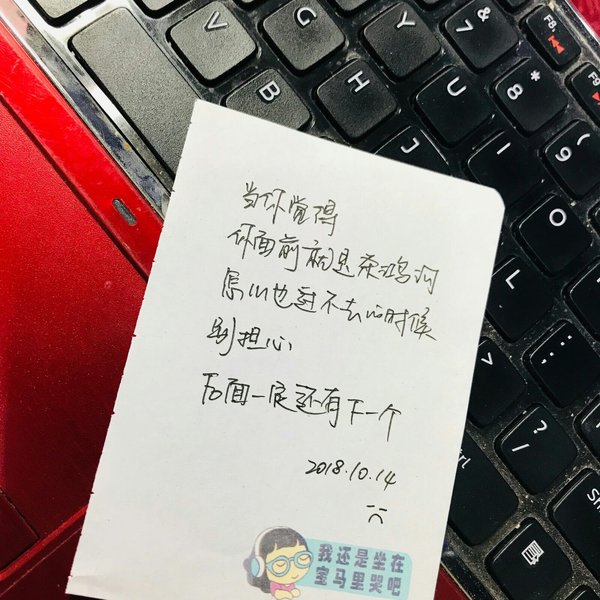 当你觉得
你面前就是条鸿沟
怎么也过不去的时候
别担心
后面一定还有下一个
2018.10.14
:(
我还是坐在
宝马里哭吧
V
G
Y
7 &
F8
B
H
U
8 *
F9
N
J
I
9 (
M
K
O
L
P
? /
Ctrl